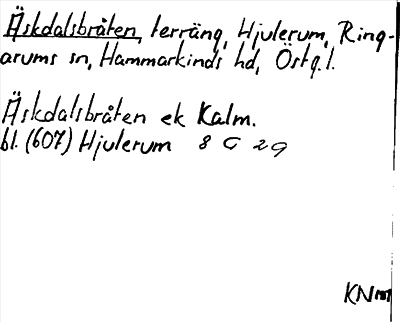 Äskdalsbråten, terräng, Hjulerum, Ring-
arums sn, Hammarkinds hd, Östg.l.
Äskdalsbråten ek Kalm.
bl. (607) Hjulerum 8 G 2g
KNm